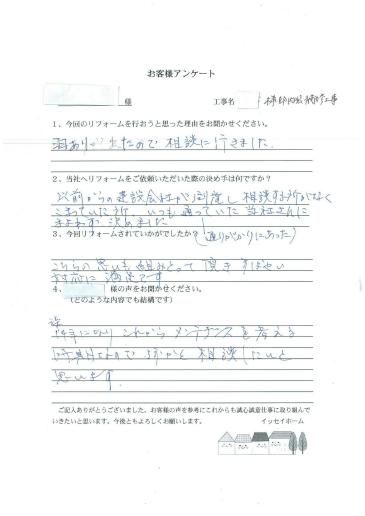 お客様アンケート
様 工事名
1、今回のリフォームを行おうと思った理由をお聞かせください。
羽ありが出たので 相談に行きました
2、当社へリフォームをご依頼いただいた際の決め手は何ですか?
以前からの建設会社が倒産し 相談する所がなく
こまっていた所 いつも通っていた 当社さんに
きまわず 決めました (通りがかりにあった)
3、今回リフォームされていかがでしたか?
こちらの思いも組みとって頂き すばやい
対応に 満足です
4、 様の声をお聞かせください。
(どのような内容でも結構です)
年になり これから メンテナンスを考える
ので 相談したいと
思います。
ご記入ありがとうございました。お客様の声を参考にこれからも誠心誠意仕事に取り組んで
いきたいと思います。今後ともよろしくお願いします。 イッセイホーム